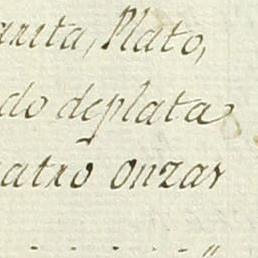 arita, Plato,
do deplata
atro onzas